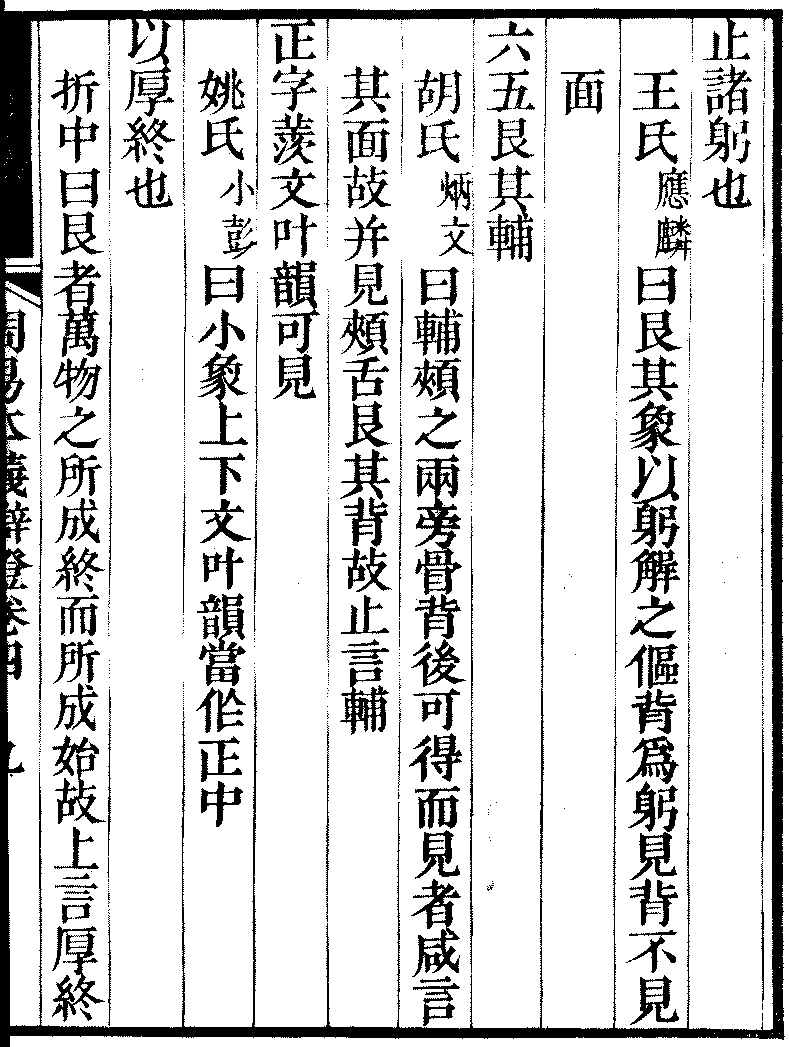 止諸躬也
王氏應麟曰艮其象以躬解之傴背爲躬見背不見
面
六五艮其輔
胡氏炳文曰輔頰之兩旁骨背後可得而見者咸言
其面故并見頰舌艮其背故止言輔
正字羨文叶韻可見
姚氏小彭曰小象上下文叶韻當作正中
以厚終也
折中曰艮者萬物之所成終而所成始故上言厚終
周易本義辨證卷四 九